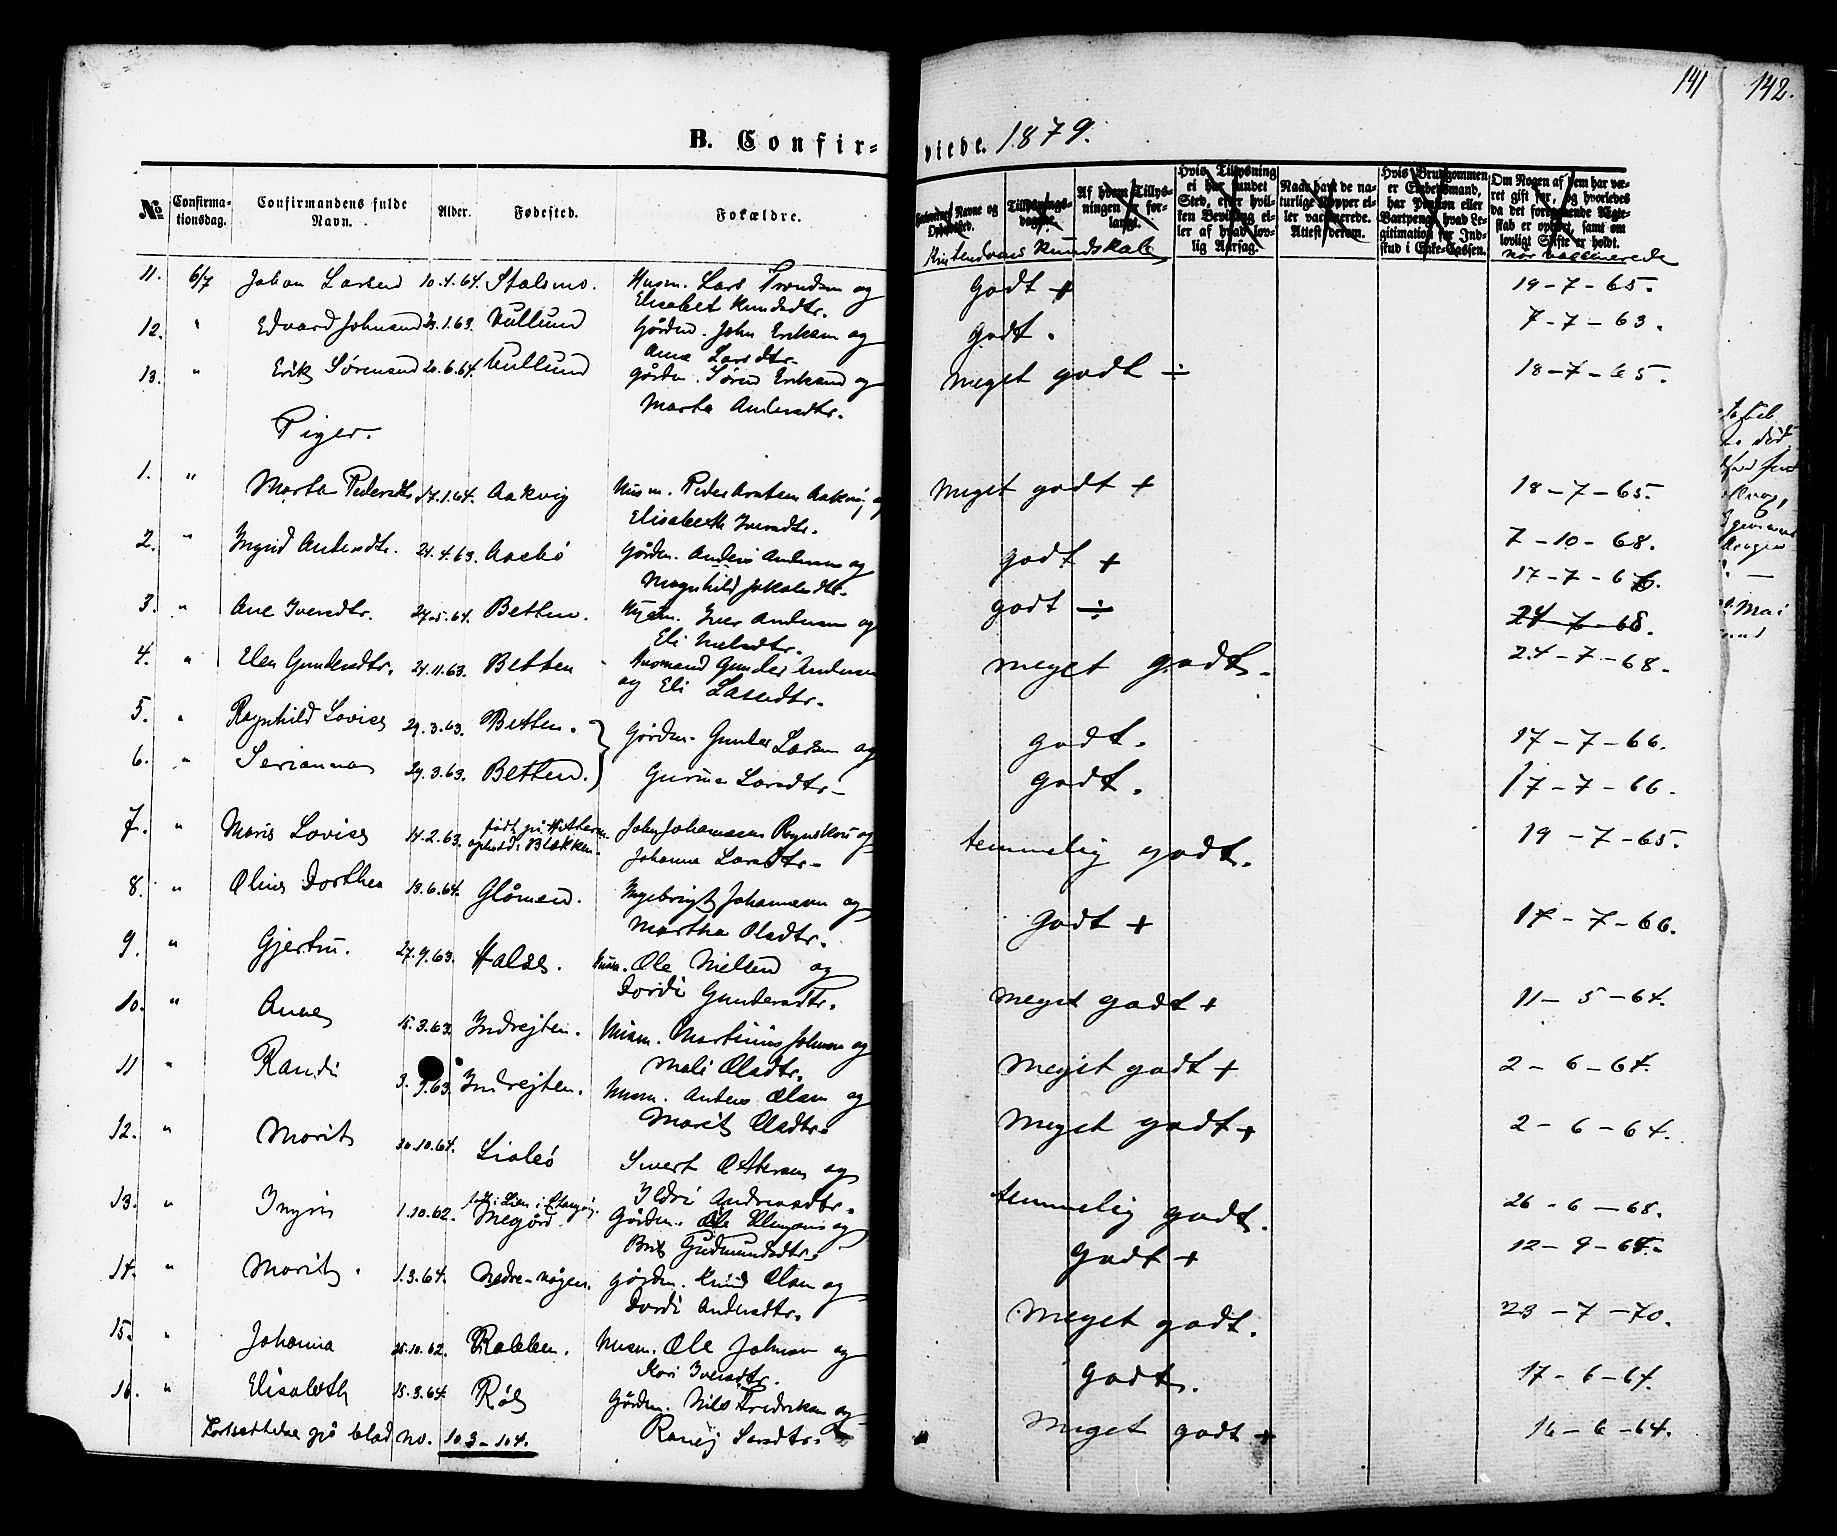 141
142.
B. Confir-
viede. 1879.
No
Confirma-
tionsdag.
Confirmandens fulde
Navn.
Alder.
Fødested.
Forældre.
Forlovernes Navne og
Opholdssted.
Tillysnings-
dagene.
Af hvem Tillys-
ningen er for-
langt.
Hvis Tillysning
ei har fundet
Sted, efter hvil-
ken Bevilling el-
ler af hvad lov-
lig Aarsag.
Naar havt de na-
turlige Kopper el-
ler vaccinerede.
Attest derom.
Hvis Brudgommen
er Embedsmand,
har Pension eller
Vartpenge, hvad Le-
gitimation for Ind-
skud i Enke-Cassen.
Om Nogen af dem har væ-
ret gift før, og hvorledes
da det foregaaende Ægte-
skab er ophørt, samt om
lovligt Skifte er holdt.
Kristendoms kundskab
når vaccinerede
11. 6/7 Johan Larsen 10.4.64. Stalsmo. Husm. Lars Trondsen og godt + 19-7-65.
Elisabet Knudsdtr.
12. " Edvard Johnsen 23.1.63. Vullum Gårdm. John Eriksen og godt. 7-7-63.
Ane Larsdtr.
13. " Erik Sørensen 20.6.64. Vullum Gårdm. Søren Eriksen og meget godt ÷ 18-7-65.
Marta Andersdtr.
Piger.
1. " Marta Pedersdtr. 17.1.64. Aakvig Husm. Peder Arntsen Aakvig og meget godt + 18-7-65.
Elisabeth Iversdtr.
2. " Ingrid Andersdtr. 21.4.63. Aasbø Gårdm. Anders Andersen og godt + 7-10-68.
Magnhild Jakobsdtr.
3. " Ane Iversdtr. 24.5.64. Betten. Iver Andersen og godt ÷ 17-7-66.
Eli Nielsdtr. 24-7-68.
4. " Elen Gundersdtr. 24.11.63. Betten Gunder Andersen meget godt. 24-7-68.
og Eli Larsdtr.
5. " Ragnhild Lovise 29.3.63. Betten. Gårdm. Gunder Larsen og godt. 17-7-66.
6. " Serianna 29.3.63. Betten. Gurine Larsdtr. godt. 17-7-66.
7. " Maris Lovise 14.2.63. født på Hitteren John Johannesen og temmelig godt. 19-7-65.
ophold: Blekken. Johanna Larsdtr.
8. " Oline Dorthea 19.6.64. Glåmen. Ingebrigt Johannesen og godt + 17-7-66.
Martha Olsdtr.
9. " Gjertru. 27.9.63. Halse. Husm. Ole Nielsen og meget godt + 11-5-64.
Dordi Gundersdtr.
10. " Anne 15.3.63. Indrejten. Husm. Martinus Johnsen og meget godt + 2-6-64.
Mali Olsdtr.
11 " Randi 3.9.63. Indrejten. Husm. Anders Olsen og meget godt + 2-6-64.
Marit Olsdtr.
12. " Marit 30.10.64. Liabø Sivert Ottersen og temmelig godt. 26-6-68.
Ildri Andreasdtr.
13. " Ingris 1.10.62. Megård. Gårdm. Ole og godt + 12-9-64.
Brit Gudmundsdtr.
14. " Marit. 1.3.64. Nedre-vågen. gårdm. Knud Olsen og meget godt. 23-7-70.
Dordi Andersdtr.
15. " Johanna 25.10.62. Rabben. Husm. Ole Johnsen og godt. 17-6-64.
Kari Iversdtr.
16. " Elisabeth 15.3.64. Røs Gårdm. Nils Fredriksen og meget godt + 16-6-64.
Fortsættelse på blad no. 103-104. Larsdtr.